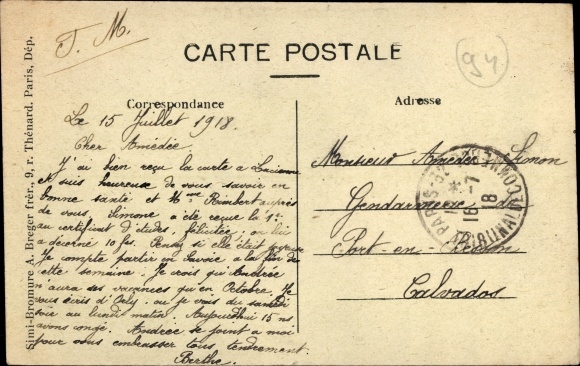 F. M.
CARTE POSTALE
94
Correspondance
Adresse
Simi-Bromure A. Breger frèr., 9, r. Thénard. Paris, Dép.
Le 15 Juillet 1918.
Cher Amédée
J'ai bien reçu la carte a Lucienne
Je suis heureuse de vous savoir en
bonne santé et Mme Rambert auprès
de vous. Simone a été reçue la 1e
au certifiant d'études, félicitée; on lui
a décerné 10 frs. Pensez si elle était joyeuse
Je compte partir en Savoie a la fin de
cette semaine. Je crois qu'Andrée
aura ses vacances qu'en Octobre. Je
vous écris d'Orly. ou je vais du samedi
soir au lundi matin. Aujourd'hui 15 ns
avons congé. Andrée se joint a moi
pour vous embrasser tous, tendrement.
Berthe.
Monsieur Amédée Simon
Gendarmerie de
Port-en-Bessin
Calvados
PARIS
16-7
18